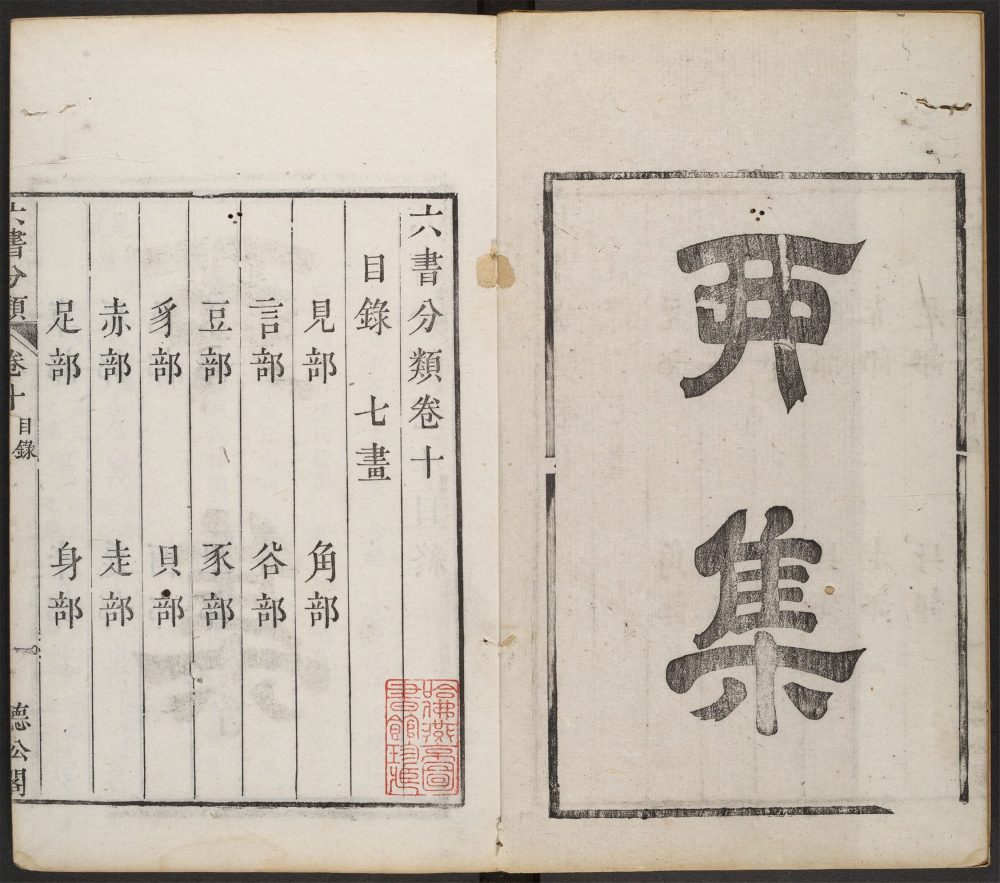 丣集
六書分類卷十
目錄 七畫
見部 角部
言部 谷部
豆部 豕部
豸部 貝部
赤部 走部
足部 身部
六書分類 卷十 目錄 一 德公閣
哈佛燕京圖書館珍藏